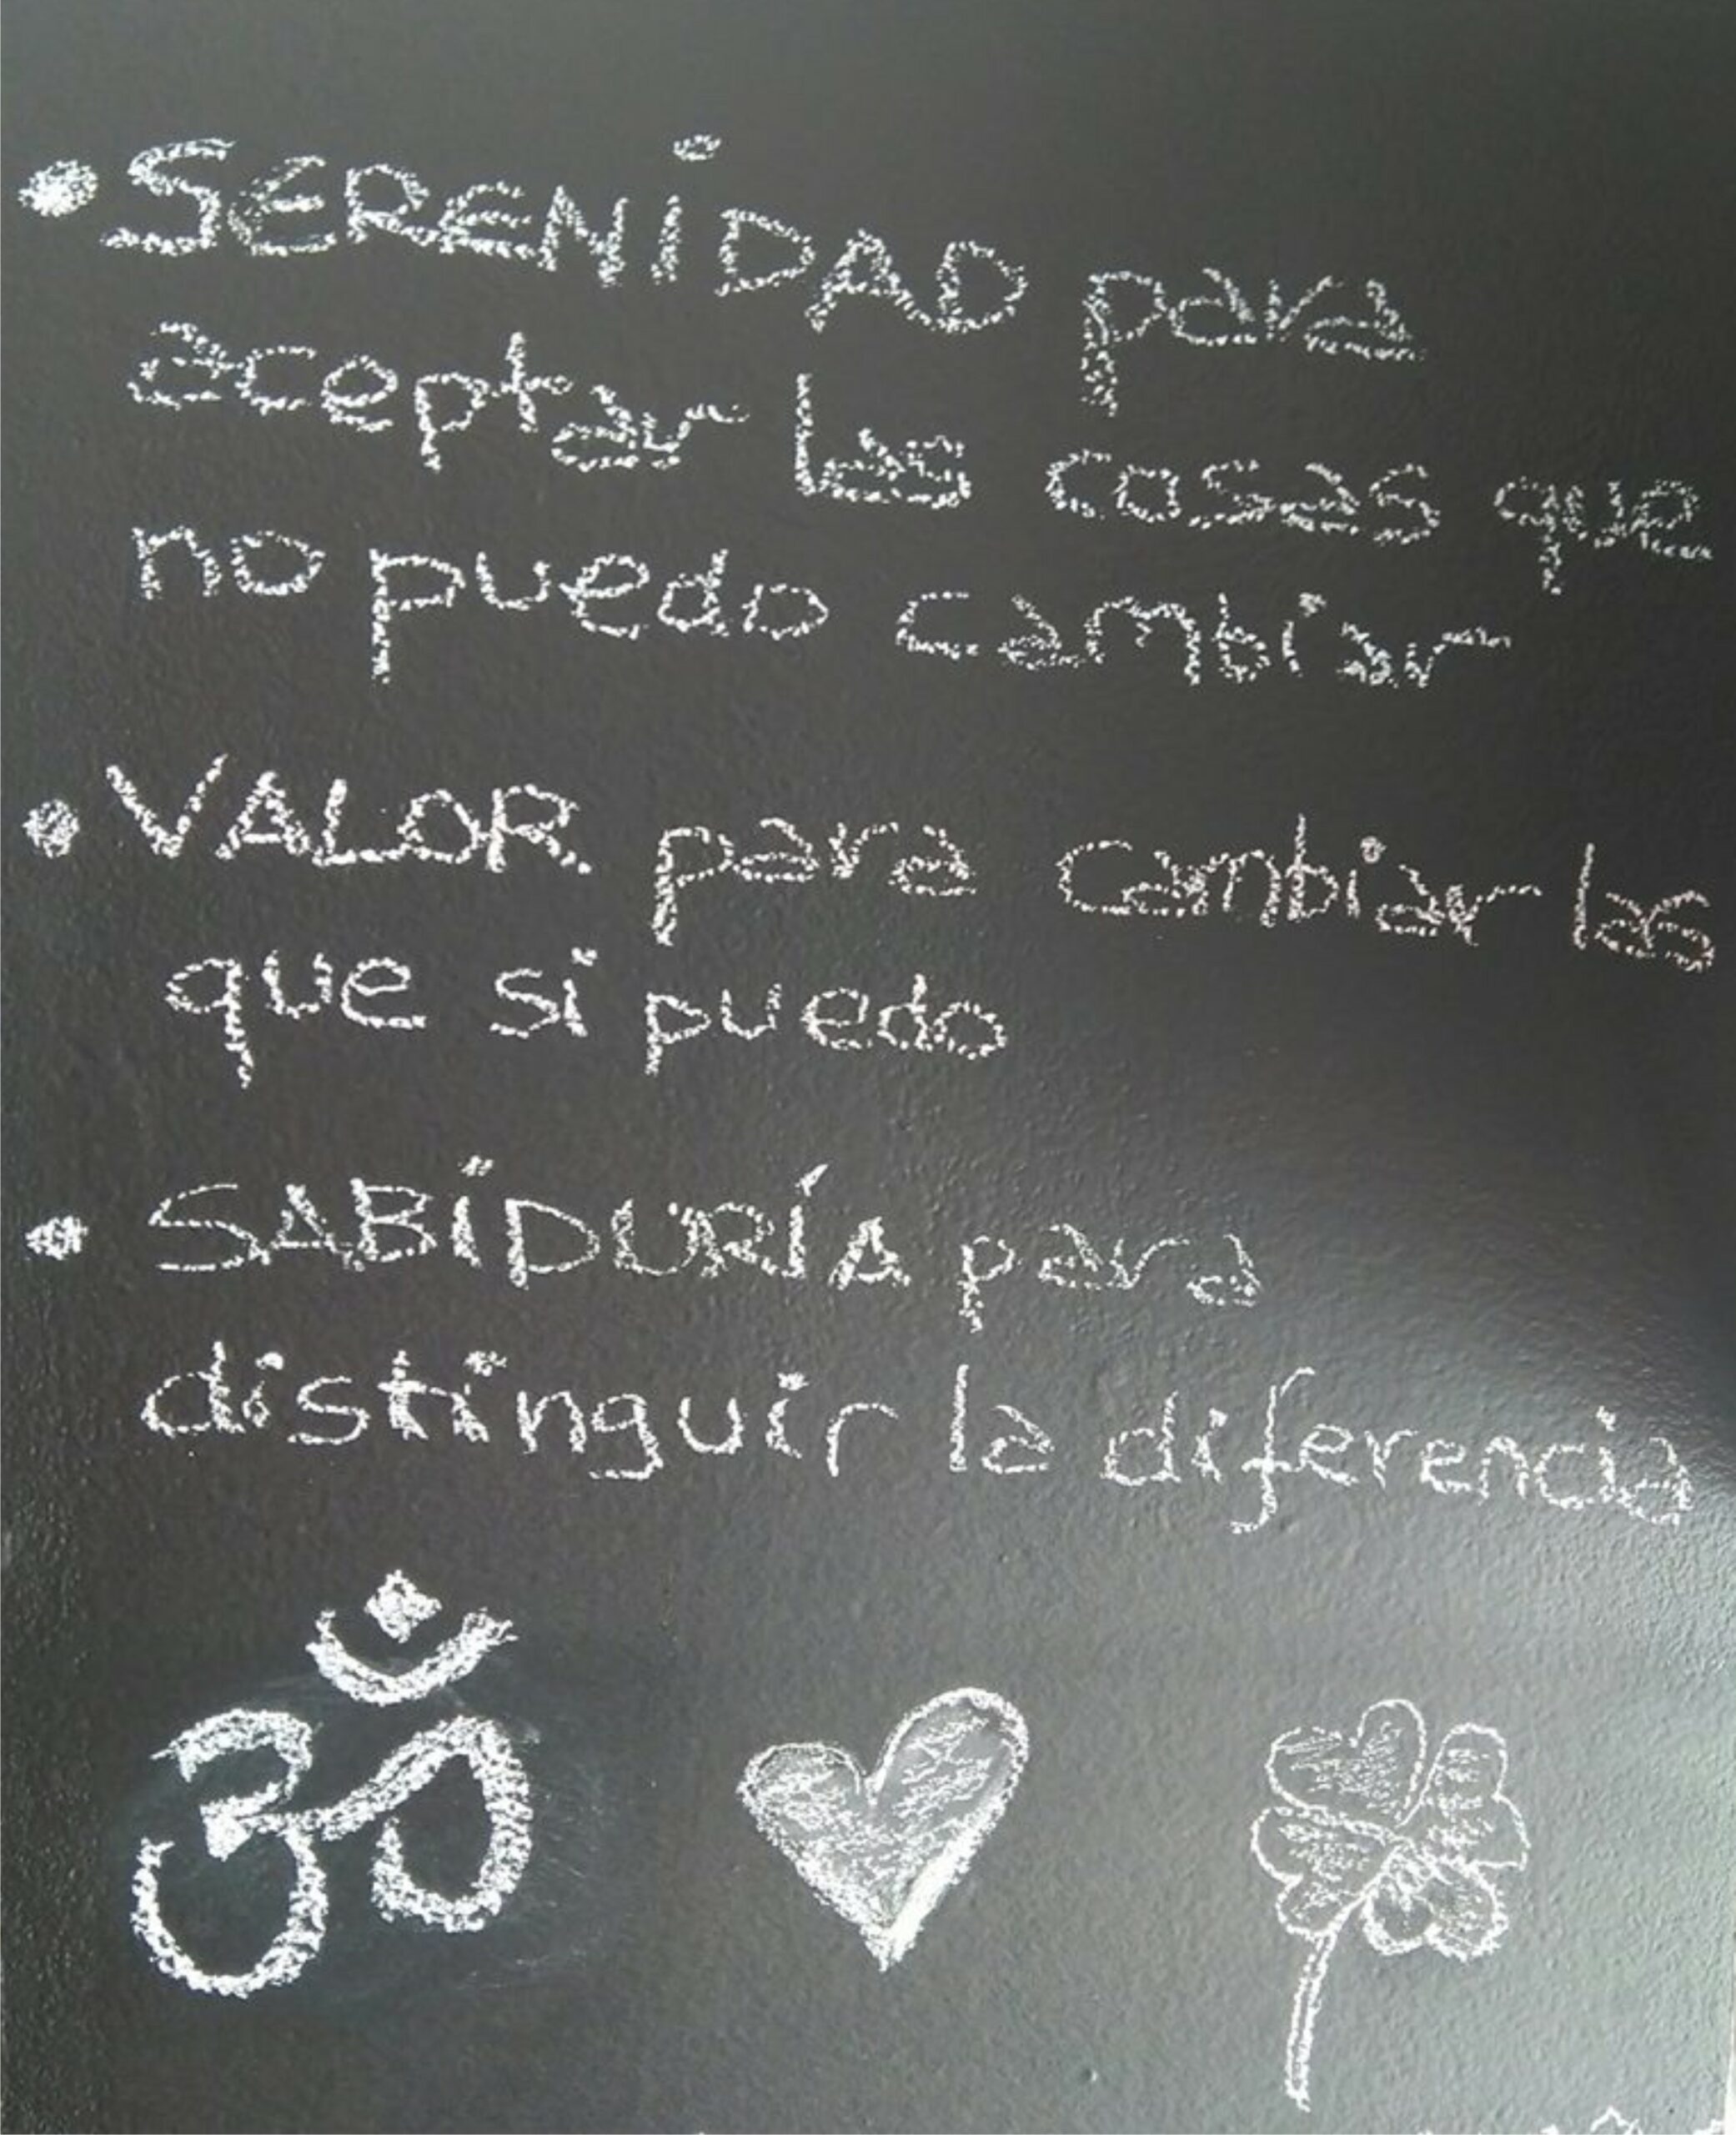 • SERENiDAD para
aceptar las cosas que
no puedo cambiar
• VALOR para cambiar las
que si puedo
• SABiDURÍA para
distinguir la diferencia
ॐ